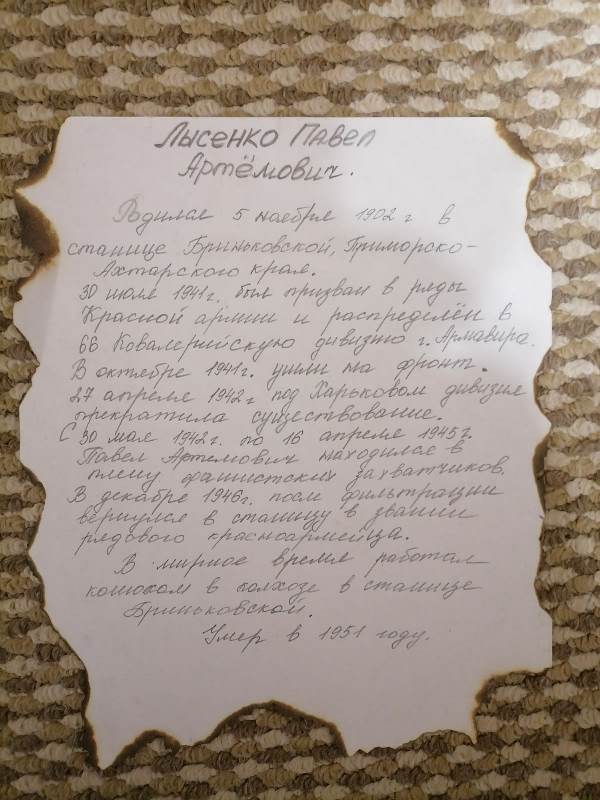 Лысенко Павел
Артёмович.
Родился 5 ноября 1902 г в
станице Бриньковской, Приморско-
Ахтарского края.
30 июля 1941г. был призван в ряды
Красной армии и распределён в
66 Ковалерийскую дивизию г. Армавира.
В октябре 1941г. ушли на фронт.
27 апреля 1942г под Харьковом дивизия
прекратила существование.
С 30 мая 1942г. по 16 апреля 1945г.
Павел Артемович находился в
плену фашистских захватчиков.
В декабре 1946г. после фильтрации
вернулся в станицу в звании
рядового красноармейца.
В мирное время работал
конюхом в колхозе в станице
Бриньковской.
Умер в 1951 году.